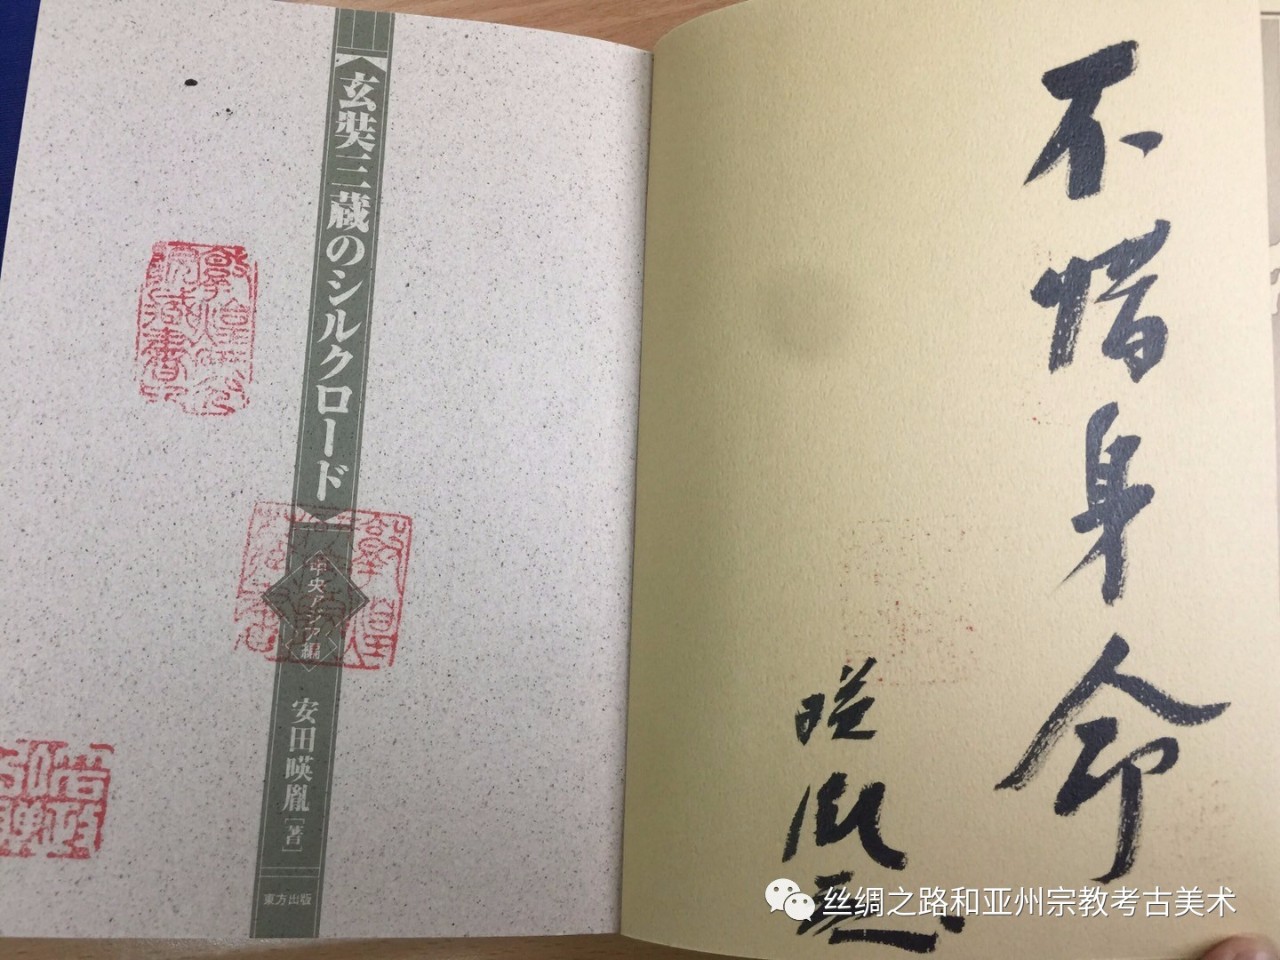 玄奘三蔵のシルクロード
中央アジア編
安田暎胤［著］
東方出版
不惜身命
暎胤
丝绸之路和亚州宗教考古美术